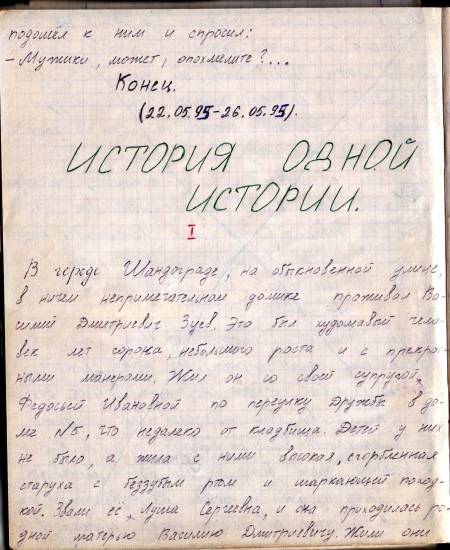 подошёл к ним и спросил:
– Мужики, может, опохмелите?...
Конец.
(22.05.95–26.05.95).
ИСТОРИЯ ОДНОЙ
ИСТОРИИ.
I
В городе Шандограде, на обыкновенной улице,
в ничем непримечательном домике проживал Ва-
силий Дмитриевич Зуев. Это был худощавый чело-
век лет сорока, небольшого роста и с прекрас-
ными манерами. Жил он со своей супругой,
Федосьей Ивановной по переулку Дружбы в до-
ме №5, что недалеко от кладбища. Детей у них
не было, а жила с ними высокая, сгорбленная
старуха с беззубым ртом и шаркающей поход-
кой. Звали её Луша Сергеевна, и она приходилась ро-
дной матерью Василию Дмитриевичу. Жили они